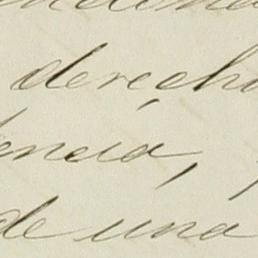 derecho
dencia,
de una